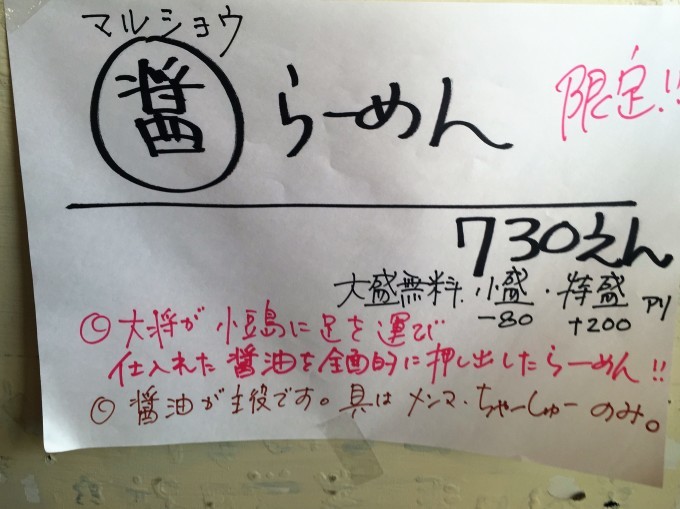 マルショウ
醤 らーめん 限定!!
730えん
大盛無料. 小盛・特盛 アリ
-80 +200
◎大将が小豆島に足を運び
仕入れた醤油を全面的に押し出したらーめん!!
◎醤油が主役です。具はメンマ・ちゃーしゅーのみ。